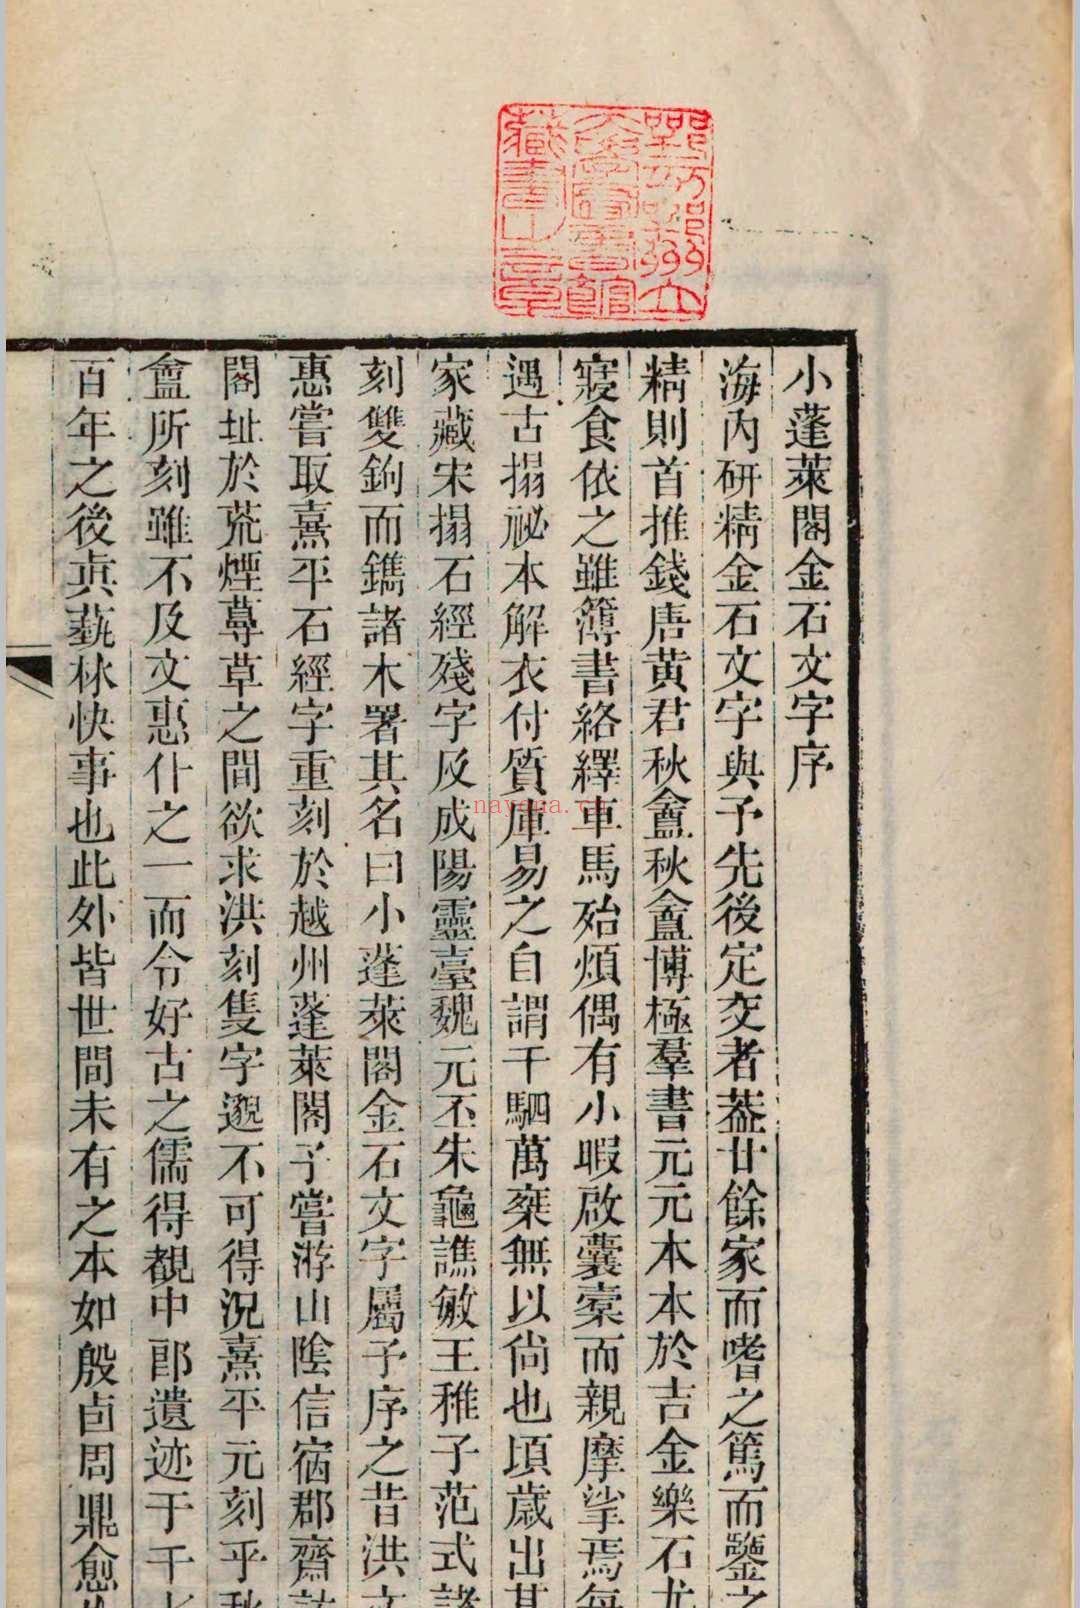 小蓬萊閣金石文字序
海內研精金石文字與予先後定交者葢廿餘家而嗜之篤而鑒之
精則首推錢唐黃君秋盦秋盦博極羣書元元本本於吉金樂石尤
寢食依之雖簿書絡繹車馬殆煩偶有小暇啟囊槖而親摩挲焉每
遇古搨祕本解衣付質庫易之自謂千駟萬椉無以尙也頃歲出其
家藏宋搨石經殘字及成陽靈臺魏元丕朱龜譙敏王稚子范式諸
刻雙鉤而鐫諸木署其名曰小蓬萊閣金石文字屬予序之昔洪文
惠嘗取熹平石經字重刻於越州蓬萊閣予嘗游山陰信宿郡齋訪
閣址於荒煙蔓草之間欲求洪刻隻字邈不可得況熹平元刻乎秋
盦所刻雖不及文惠什之一而令好古之儒得覩中郎遺迹于千七
百年之後眞藝林快事也此外皆世間未有之本如殷卣周鼎愈
鄂州立
大學圖書館
藏書之章
navena.c